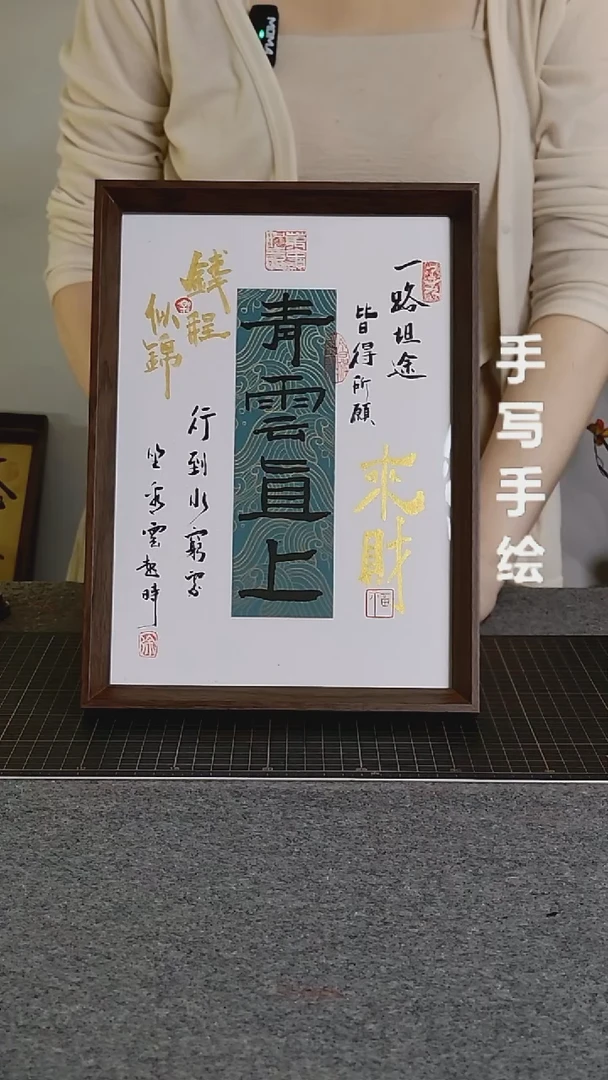 MOMA
手写手绘
一路坦途
皆得所願
來財
福
青雲直上
錢程
似錦
行到水窮處
坐看雲起時